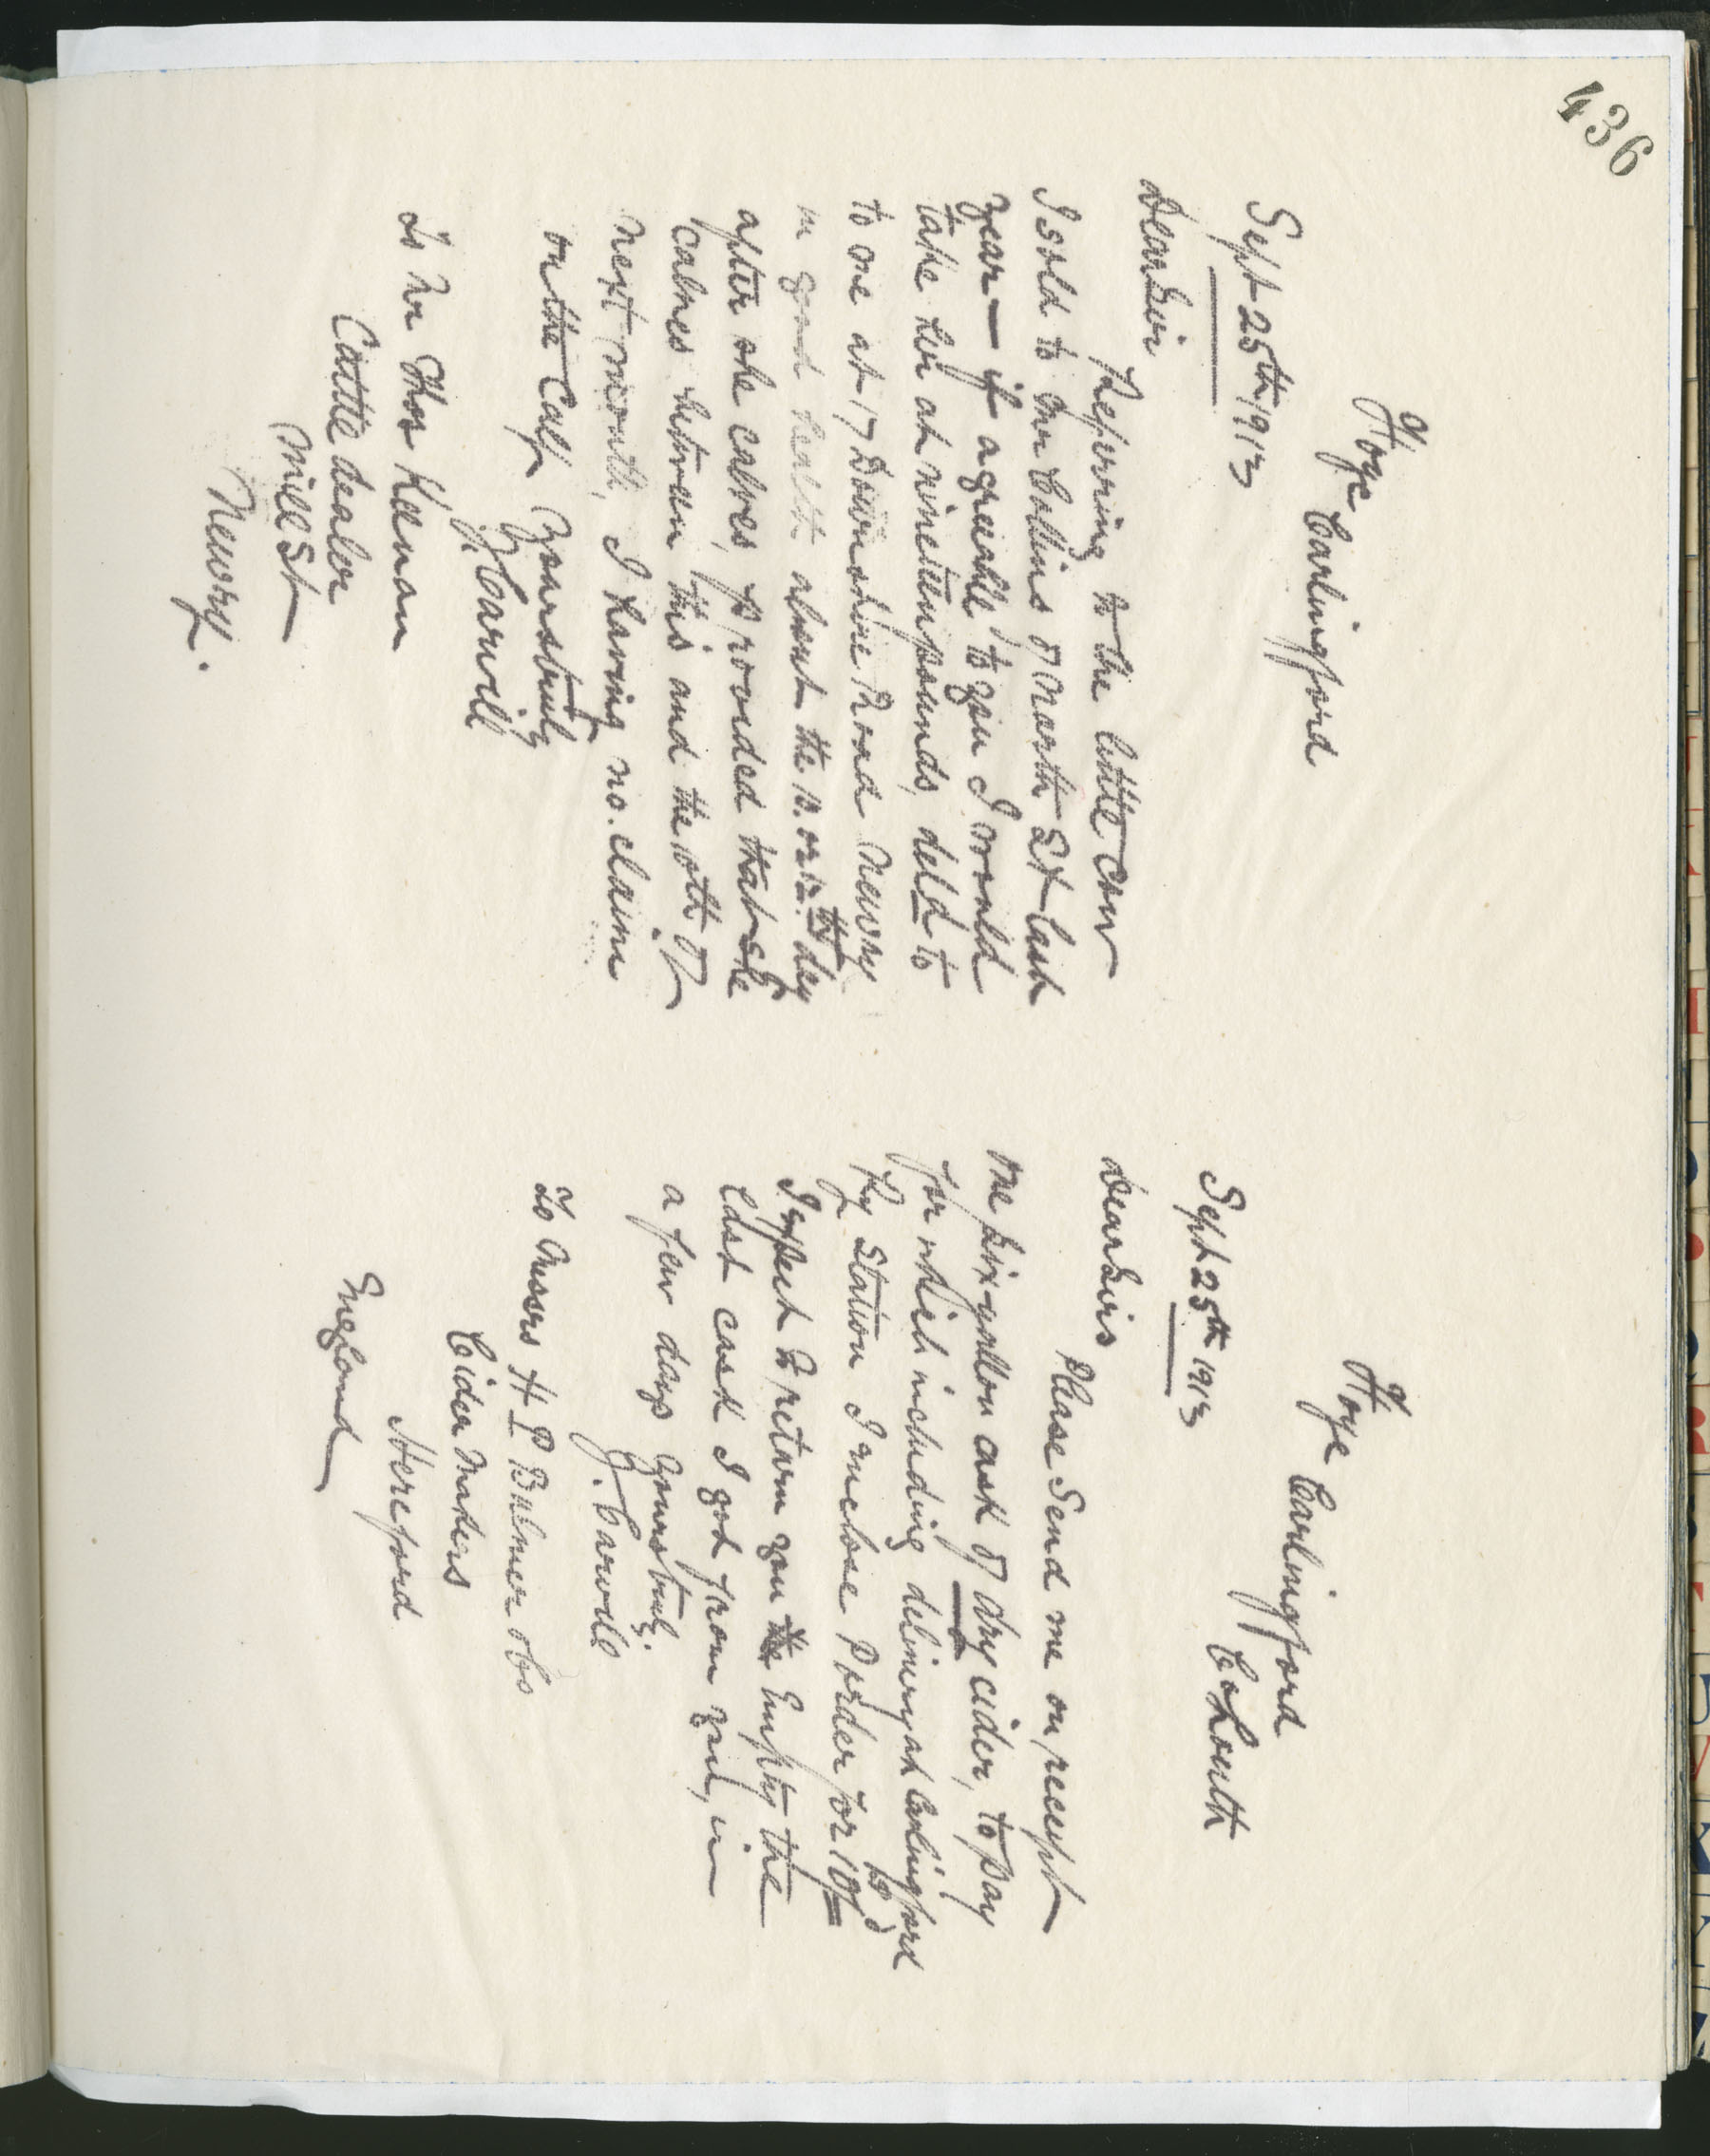 436
Foye
Carlingford
Sept 25th 1913
Dear Sir
Referring to the little cow
I sold to Mr Collins of North St last
year — if agreeable to you I would
take her at nineteen pounds, deld to
to me at 17 Downshire Road Newry
in good health about the 10. or 12.th day
after she calves, provided that she
calves between this and the 10th of
next month, I having no. claim
on the calf Yours truly
J. Carvill
To Mr Thos Keenan
Cattle dealer
Mill St
Newry.
Foye
Carlingford
Co Louth
Sept 25th 1913
Dear Sirs
Please Send me on receipt
one six-gallon cask of dry cider, to pay
for which including delivery at Carlingford
Ry Station I enclose P order for
I expect to return you the Empty the
last cask I got from you, in
a few days Yours truly.
J. Carvill
To Messrs H P Bulmer & Co
Cider Makers
Hereford
England